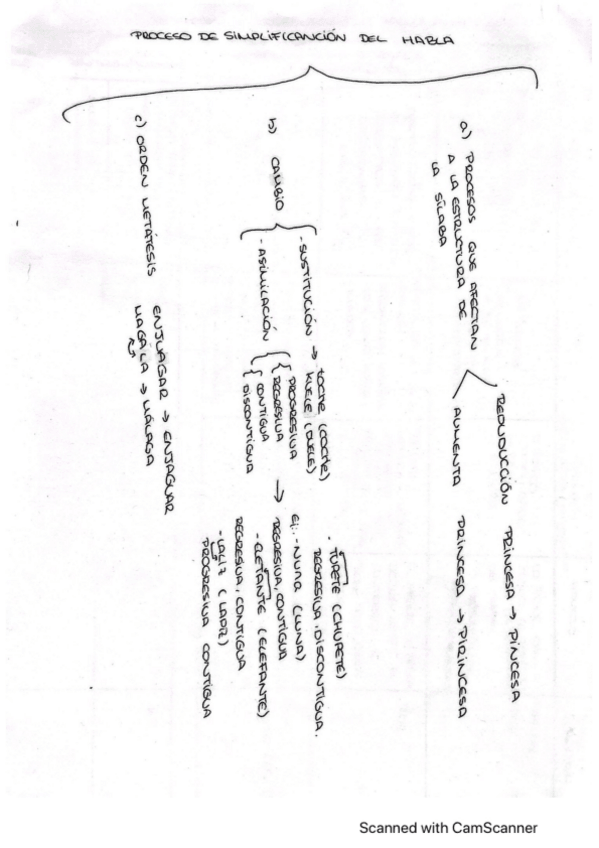 PROCESO DE SIMPLIFICANCIÓN DEL HABLA
a) PROCESOS QUE AFECTAN
A LA ESTRUCTURA DE
LA SÍLABA
REDUDUCCIÓN PRINCESA → PINCESA
AUMENTA PRINCESA → PIRINCESA
b) CAMBIO
- SUSTITUCIÓN → TOCHE (COCHE)
KUELE (DUELE)
- ASIMILACIÓN
PROGRESIVA
REGRESIVA
CONTIGUA
DISCONTIGUA
→
- TUPETE (CHUPETE)
REGRESIVA, DISCONTIGUA.
Ej: - NUNA (LUNA)
REGRESIVA, CONTIGUA
- ELETANTE (ELEFANTE)
REGRESIVA, CONTIGUA
- LALIZ (LAPIZ)
PROGRESIVA CONTIGUA
c) ORDEN METÁTESIS
ENJUAGAR → ENJAGUAR
MAGÁLA → MÁLAGA
Scanned with CamScanner